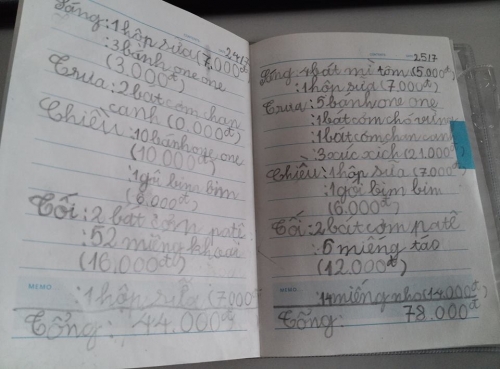 24/7
Sáng: 1 hộp sữa (7.000đ)
: 3 bánh one one
(3.000đ)
Trưa: 2 bát cơm chan
canh (0.000đ)
Chiều: 10 bánh one one
(10.000đ)
: 1 gói bim bim
(6.000đ)
Tối: 2 bát cơm patê
: 52 miếng
(16.000đ)
MEMO
: 1 hộp sữa (7.000đ)
Tổng: 44.000đ
25/7
Sáng: 4 bát mì tôm (5.000đ)
: 1 hộp sữa (7.000đ)
Trưa: 5 bánh one one
: 1 bát cơm chó vừng
: 1 bát cơm chan canh
: 3 xúc xích (21.000đ)
Chiều: 1 hộp sữa (7.000đ)
: 1 gói bim bim
(6.000đ)
Tối: 2 bát cơm patê
: 5 miếng táo
(12.000đ)
MEMO
: 14 miếng nho (14.000đ)
Tổng: 78.000đ